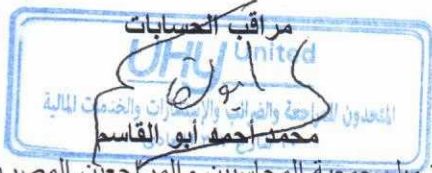 مراقب الحسابات
UHY United
المتحدون للمراجعة والضرائب والإستشارات والخدمات المالية
محمد أحمد أبو القاسم
جمعية المحاسبين والمراجعين